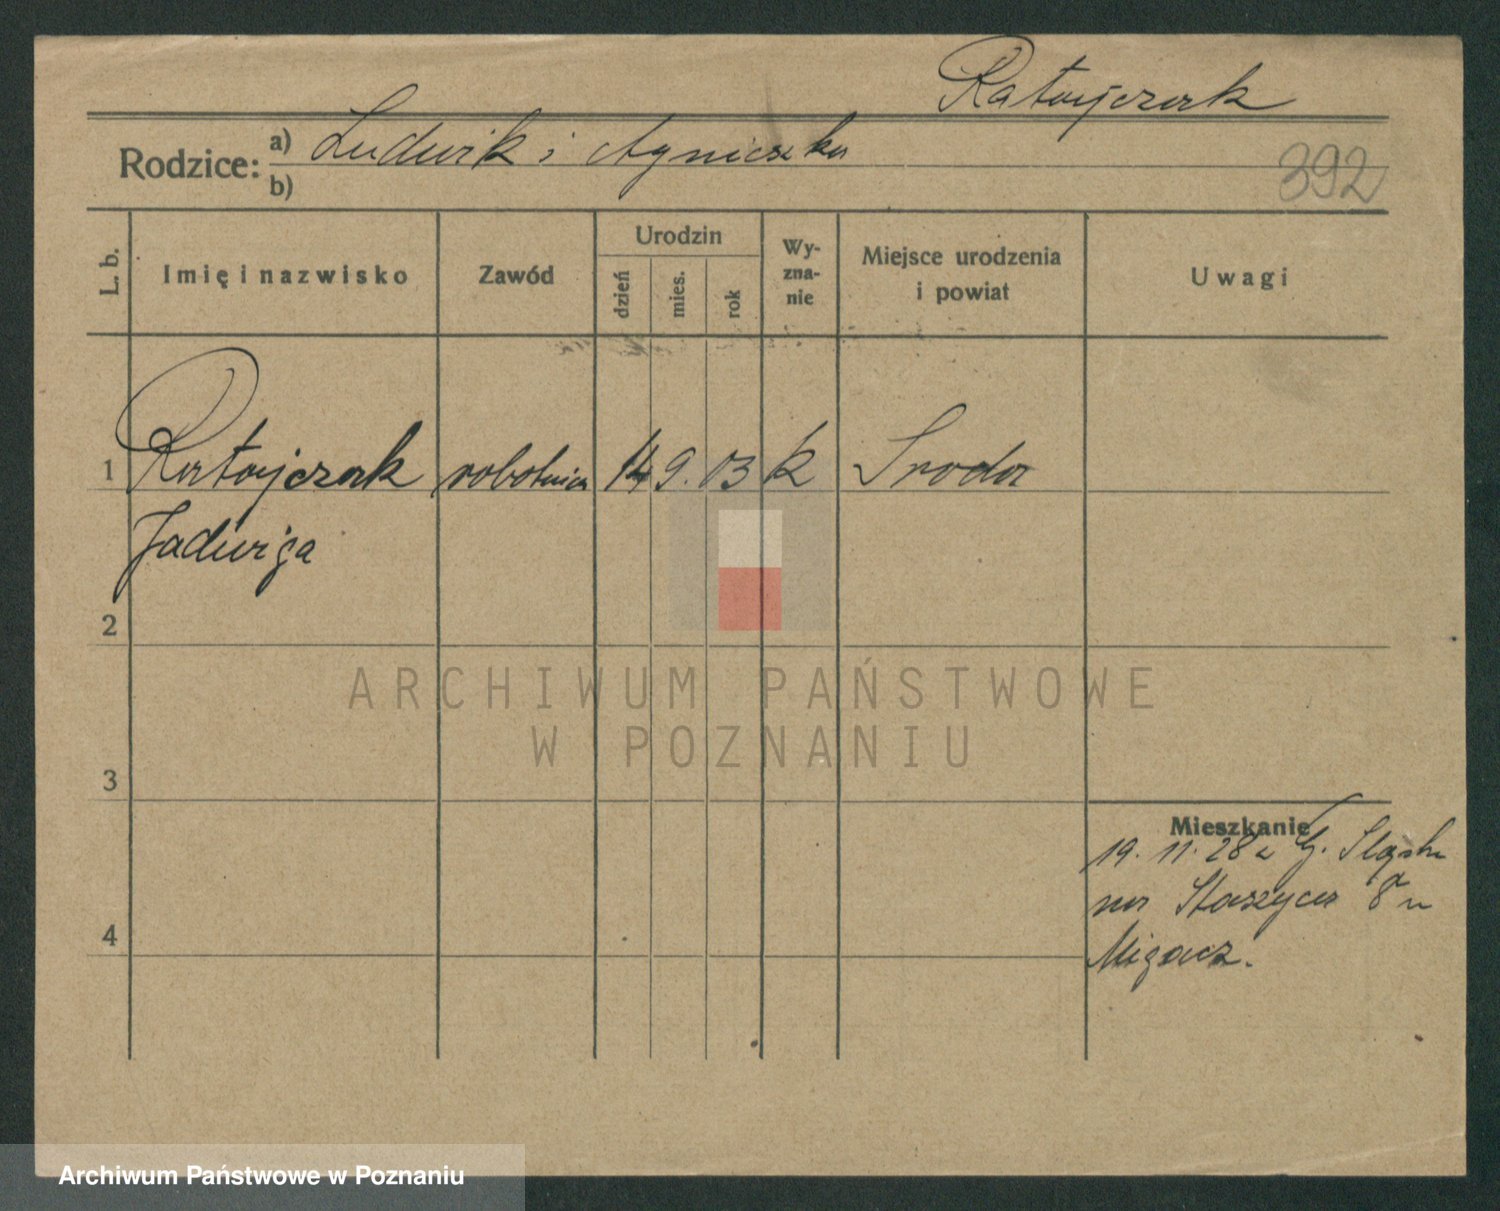 Ratajczak
Rodzice: a) Ludwik i Agnieszka
b)
392
L. b.
Imię i nazwisko
Zawód
Urodzin
dzień
mies.
rok
Wy-
zna-
nie
Miejsce urodzenia
i powiat
Uwagi
1 Ratajczak robotnica 14 9. 03 k Sroda
Jadwiga
2
3
4
Mieszkanie
19. 11. 28 z G. Śląska
na Staszyca 8 u
Migacz.
ARCHIWUM PAŃSTWOWE
W POZNANIU
Archiwum Państwowe w Poznaniu